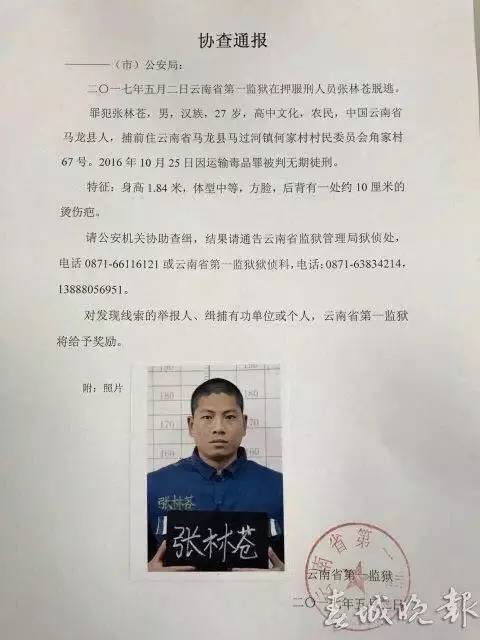 协查通报
————（市）公安局：
二〇一七年五月二日云南省第一监狱在押服刑人员张林苍脱逃。
罪犯张林苍，男，汉族，27 岁，高中文化，农民，中国云南省
马龙县人，捕前住云南省马龙县马过河镇何家村村民委员会角家村
67 号。2016 年 10 月 25 日因运输毒品罪被判无期徒刑。
特征：身高 1.84 米，体型中等，方脸，后背有一处约 10 厘米的
烫伤疤。
请公安机关协助查缉，结果请通告云南省监狱管理局狱侦处，
电话 0871-66116121 或云南省第一监狱狱侦科，电话：0871-63834214，
13888056951。
对发现线索的举报人、缉捕有功单位或个人，云南省第一监狱
将给予奖励。
附：照片
190
180 180
170 170
160 160
张林苍
张林苍
云南省第一监狱
二〇一七年五月二日
春城晚報